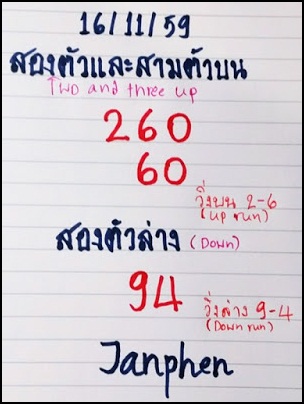 16/11/59
สองตัวและสามตัวบน
Two and three up
260
60
วิ่งบน 2-6
(up run)
สองตัวล่าง (Down)
94
วิ่งล่าง 9-4
(Down run)
Janphen